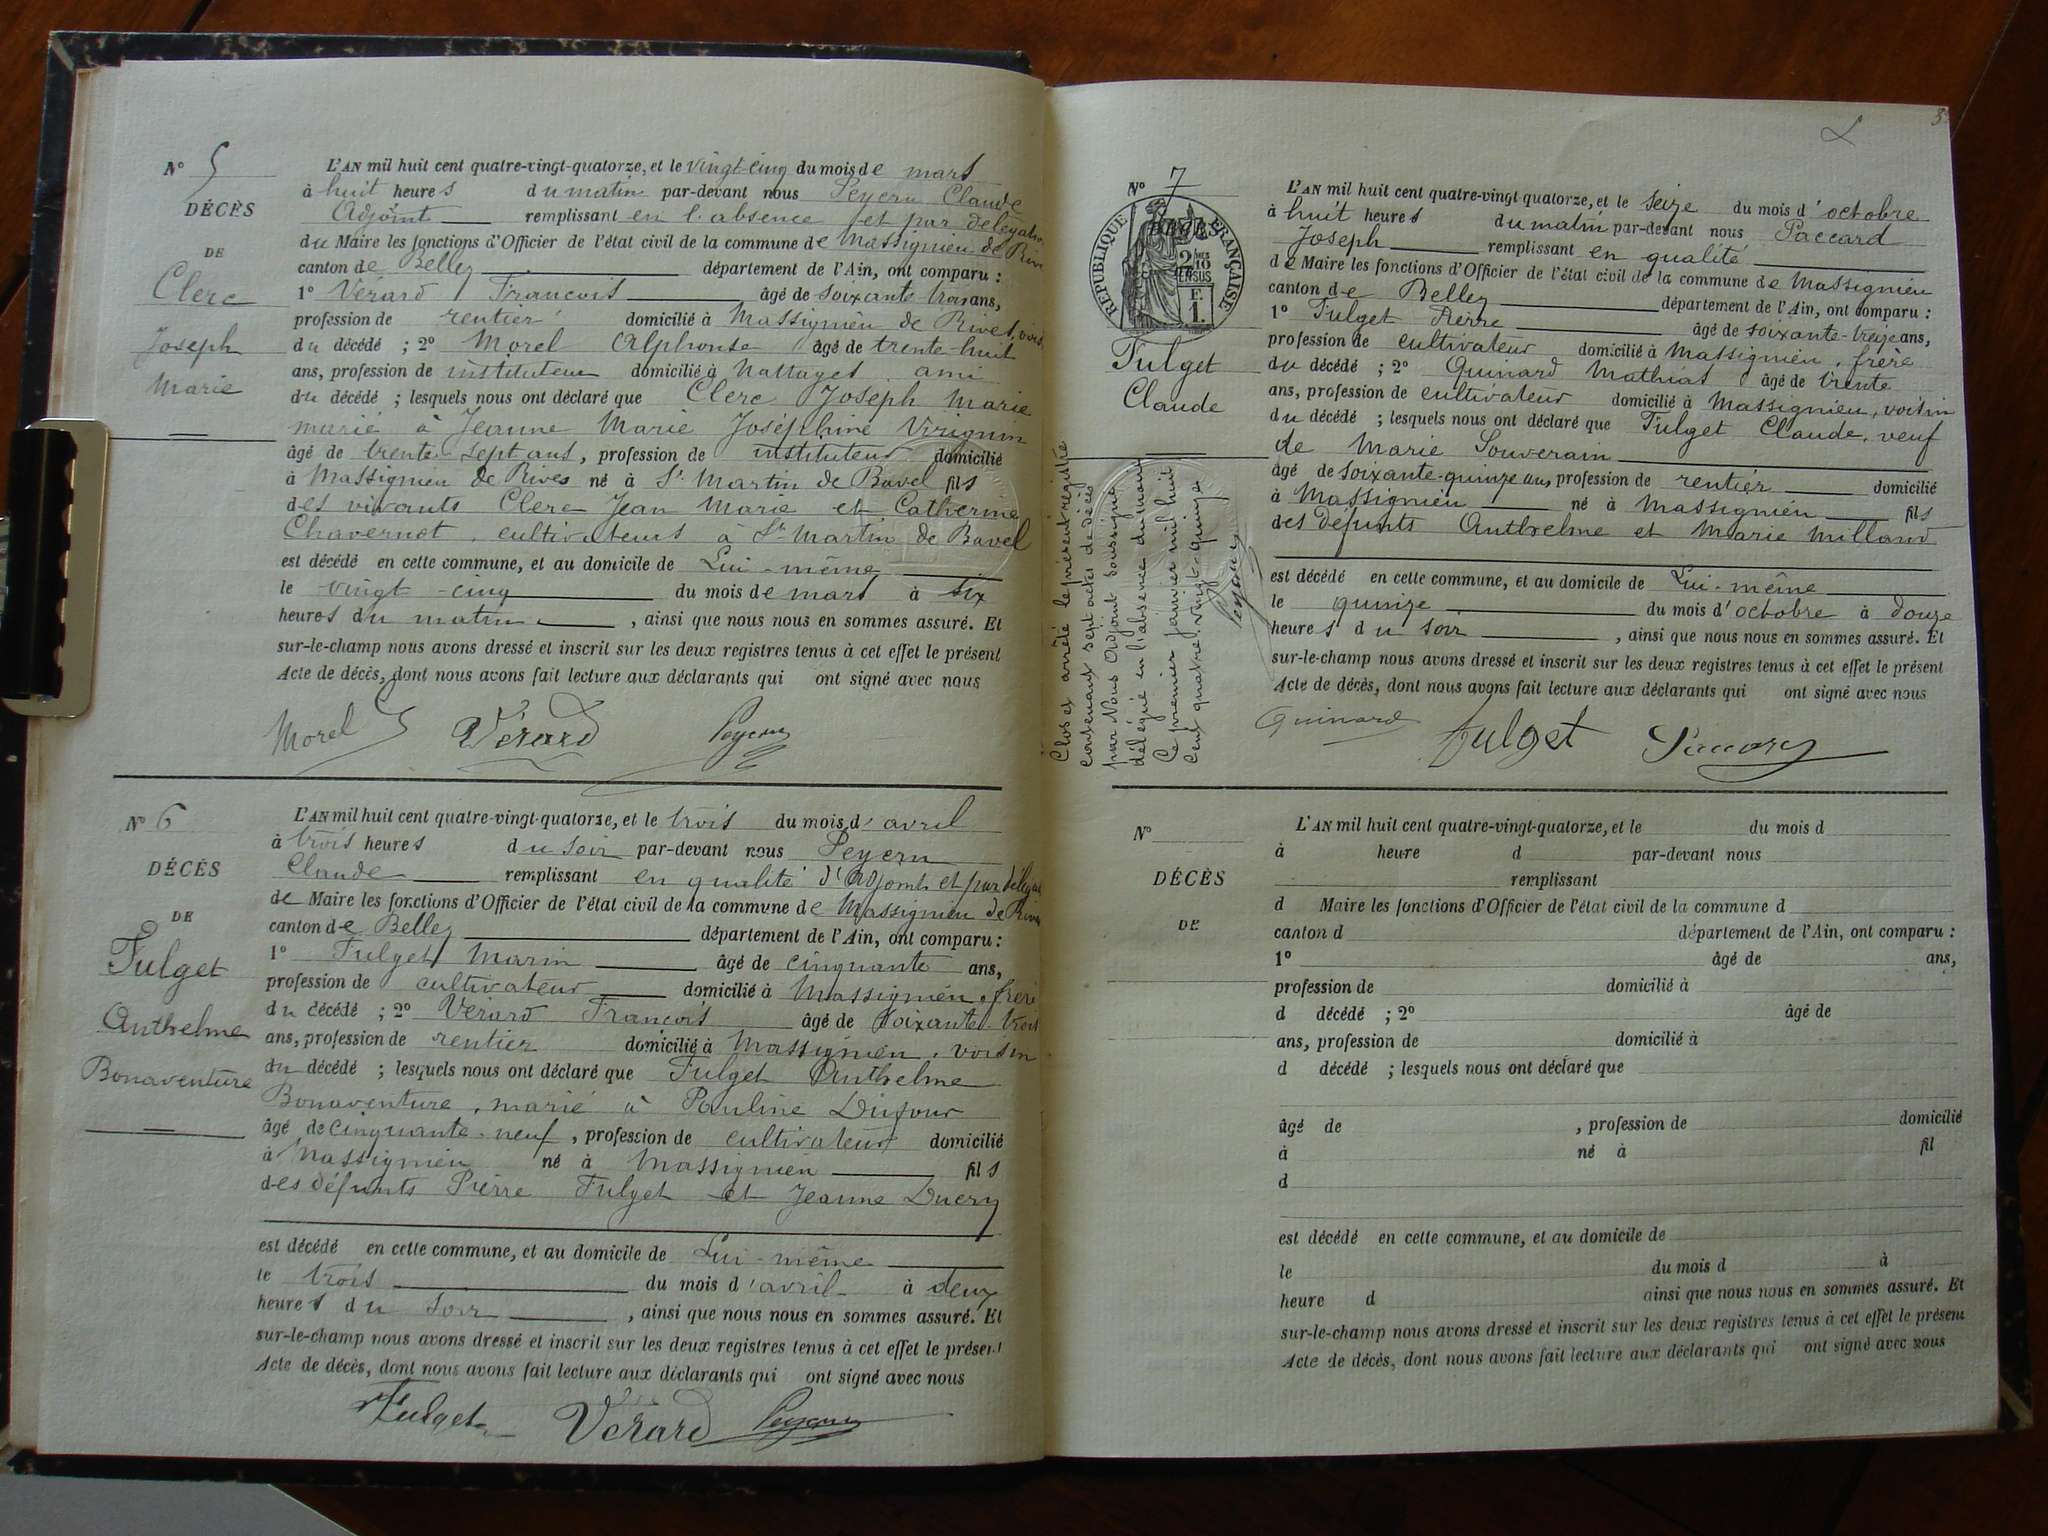 N° 5
DÉCÈS
DE
Clerc
Joseph
Marie
L'AN mil huit cent quatre-vingt-quatorze, et le vingt-cinq du mois de mars
à huit heures du matin par-devant nous Peyern Claude
Adjoint remplissant en l'absence et par délégation
du Maire les fonctions d'Officier de l'état civil de la commune de Massignieu de Rives
canton de Belley département de l'Ain, ont comparu :
1° Vérard François âgé de soixante trois ans,
profession de rentier domicilié à Massignieu de Rives, voisin
du décédé ; 2° Morel Alphonse âgé de trente-huit
ans, profession de instituteur domicilié à Nattages ami
du décédé ; lesquels nous ont déclaré que Clerc Joseph Marie
marié à Jeanne Marie Joséphine Virignin
âgé de trente-sept ans, profession de instituteur domicilié
à Massignieu de Rives né à St Martin de Bavel fils
des vivants Clerc Jean Marie et Catherine
Chavernot, cultivateurs à St Martin de Bavel
est décédé en cette commune, et au domicile de Lui-même
le vingt-cinq du mois de mars à six
heures du matin, ainsi que nous nous en sommes assuré. Et
sur-le-champ nous avons dressé et inscrit sur les deux registres tenus à cet effet le présent
Acte de décès, dont nous avons fait lecture aux déclarants qui ont signé avec nous
Morel Vérard Peyern
N° 6
DÉCÈS
DE
Fulget
Anthelme
Bonaventure
L'AN mil huit cent quatre-vingt-quatorze, et le trois du mois d'avril
à trois heures du soir par-devant nous Peyern
Claude remplissant en qualité d'Adjoint et par délégation
de Maire les fonctions d'Officier de l'état civil de la commune de Massignieu de Rives
canton de Belley département de l'Ain, ont comparu :
1° Fulget Marin âgé de cinquante ans,
profession de cultivateur domicilié à Massignieu, frère
du décédé ; 2° Vérard François âgé de soixante-trois
ans, profession de rentier domicilié à Massignieu, voisin
du décédé ; lesquels nous ont déclaré que Fulget Anthelme
Bonaventure, marié à Pauline Dufour
âgé de cinquante-neuf, profession de cultivateur domicilié
à Massignieu né à Massignieu fils
des défunts Pierre Fulget et Jeanne Ducry
est décédé en cette commune, et au domicile de Lui-même
le trois du mois d'avril à deux
heures du soir, ainsi que nous nous en sommes assuré. Et
sur-le-champ nous avons dressé et inscrit sur les deux registres tenus à cet effet le présent
Acte de décès, dont nous avons fait lecture aux déclarants qui ont signé avec nous
Fulget Vérard Peyern
N° 7
DÉCÈS
RÉPUBLIQUE FRANÇAISE
2/10
EN SUS
F.
1.
Fulget
Claude
Clos et arrêté le présent registre
contenant sept actes de décès
par Nous Adjoint soussigné
délégué en l'absence du maire
Ce premier janvier mil huit
cent quatre-vingt-quinze
Peyern
L'AN mil huit cent quatre-vingt-quatorze, et le seize du mois d'octobre
à huit heures du matin par-devant nous Paccard
Joseph remplissant en qualité
de Maire les fonctions d'Officier de l'état civil de la commune de Massignieu
canton de Belley département de l'Ain, ont comparu :
1° Fulget Pierre âgé de soixante-treize ans,
profession de cultivateur domicilié à Massignieu, frère
du décédé ; 2° Guinard Mathias âgé de trente
ans, profession de cultivateur domicilié à Massignieu, voisin
du décédé ; lesquels nous ont déclaré que Fulget Claude, veuf
de Marie Souverain
âgé de soixante-quinze ans profession de rentier domicilié
à Massignieu né à Massignieu fils
des défunts Anthelme et Marie Milland
est décédé en cette commune, et au domicile de Lui-même
le quinze du mois d'octobre à douze
heures du soir, ainsi que nous nous en sommes assuré. Et
sur-le-champ nous avons dressé et inscrit sur les deux registres tenus à cet effet le présent
Acte de décès, dont nous avons fait lecture aux déclarants qui ont signé avec nous
Guinard Fulget Paccard
N°
DÉCÈS
DE
L'AN mil huit cent quatre-vingt-quatorze, et le du mois d
à heure d par-devant nous
remplissant
d Maire les fonctions d'Officier de l'état civil de la commune d
canton d département de l'Ain, ont comparu :
1° âgé de ans,
profession de domicilié à
d décédé ; 2° âgé de
ans, profession de domicilié à
d décédé ; lesquels nous ont déclaré que
âgé de , profession de domicilié
à né à fil
d
est décédé en cette commune, et au domicile de
le du mois d à
heure d ainsi que nous nous en sommes assuré. Et
sur-le-champ nous avons dressé et inscrit sur les deux registres tenus à cet effet le présent
Acte de décès, dont nous avons fait lecture aux déclarants qui ont signé avec nous